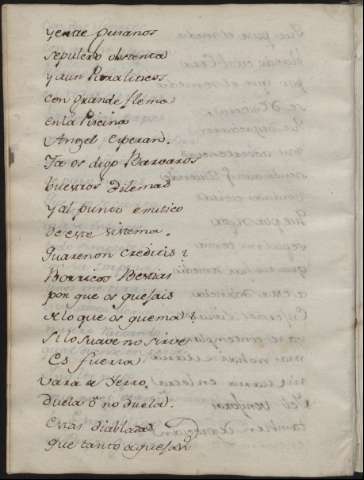 y entre gusanos
sepulcro obstenta
y aun Paraliticos
con grande flema
en la Picina
Angel esperan.
Ya os digo Barvaros
vuestros dilemas
y al punto emitico
de este sistema.
Quare non creditis?
Borricos Bestias
por que os quejais
de lo que os quema?
Si lo suave no sirve
Es fuerza
vara de Yerro,
duela ô no duela.
Estas diabladas
que tanto aquejan